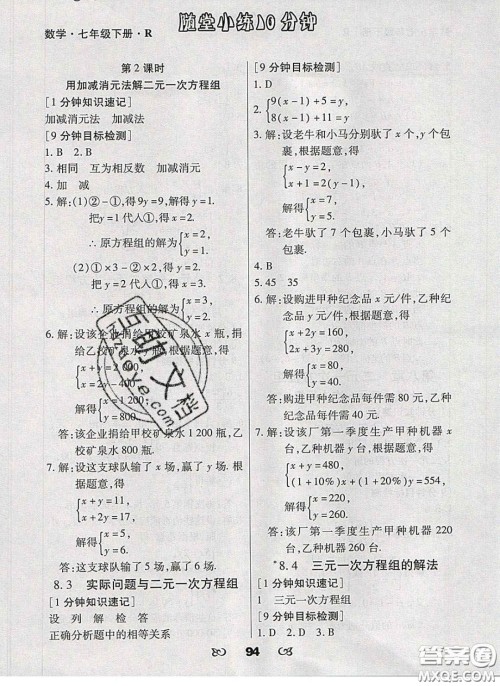 数学·七年级下册·R
随堂小练10分钟
第2课时
用加减消元法解二元一次方程组
[1分钟知识速记]
加减消元法 加减法
[9分钟目标检测]
1. B 2. B
3. 相同 互为相反数 加减消元
4. 加 减
5. 解:(1)②-①,得9y=9,解得y=1.
把y=1代人①,得x=2.
∴原方程组的解为{x=2, y=1.
(2)①×3-②×2,得y=2.
把y=2代人①,得x=3.
∴原方程组的解为{x=3, y=2.
6. 解:设该企业捐给甲校矿泉水x瓶,捐
给乙校矿泉水y瓶.根据题意,得
{x+y=2 000,
解得{x=1 200, y=800.
答:该企业捐给甲校矿泉水1 200瓶,乙
校矿泉水800瓶.
7. 解:设这支球队输了x场,赢了y场.根
据题意,得
{x+y=11,
x+2y=17,
解得{x=5, y=6.
答:这支球队输了5场,赢了6场.
8.3 实际问题与二元一次方程组
[1分钟知识速记]
设 列 解 检 答
正确分析题中的相等关系
[9分钟目标检测]
1. D
2. {9(x-1)+5=y,
8(x-1)+11=y
3. 解:设老牛和小马分别驮了x个、y个包
裹,根据题意,得
{x-y=2,
x+1=2(y-1),
解得{x=7, y=5.
答:老牛驮了7个包裹,小马驮了5个
包裹.
4. B
5. 45 35
6. 解:设购进甲种纪念品x元/件,乙种纪
念品y元/件.根据题意,得
{x+2y=160,
2x+3y=280,
解得{x=80, y=40.
答:购进甲种纪念品每件需80元,乙种
纪念品每件需40元.
7. 解:设该厂第一季度生产甲种机器x
台,乙种机器y台.根据题意,得
{x+y=480,
(1+10%)x+(1+20%)y=554,
解得{x=220, y=260.
答:该厂第一季度生产甲种机器220
台,乙种机器260台.
*8.4 三元一次方程组的解法
[1分钟知识速记]
1 三元一次方程组
[9分钟目标检测]
1. D 2. B 3. D
94
互助文档
答案圈
MXQE.COM